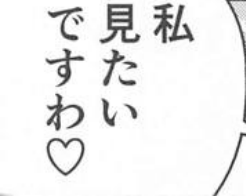 私
見たい
ですわ♡